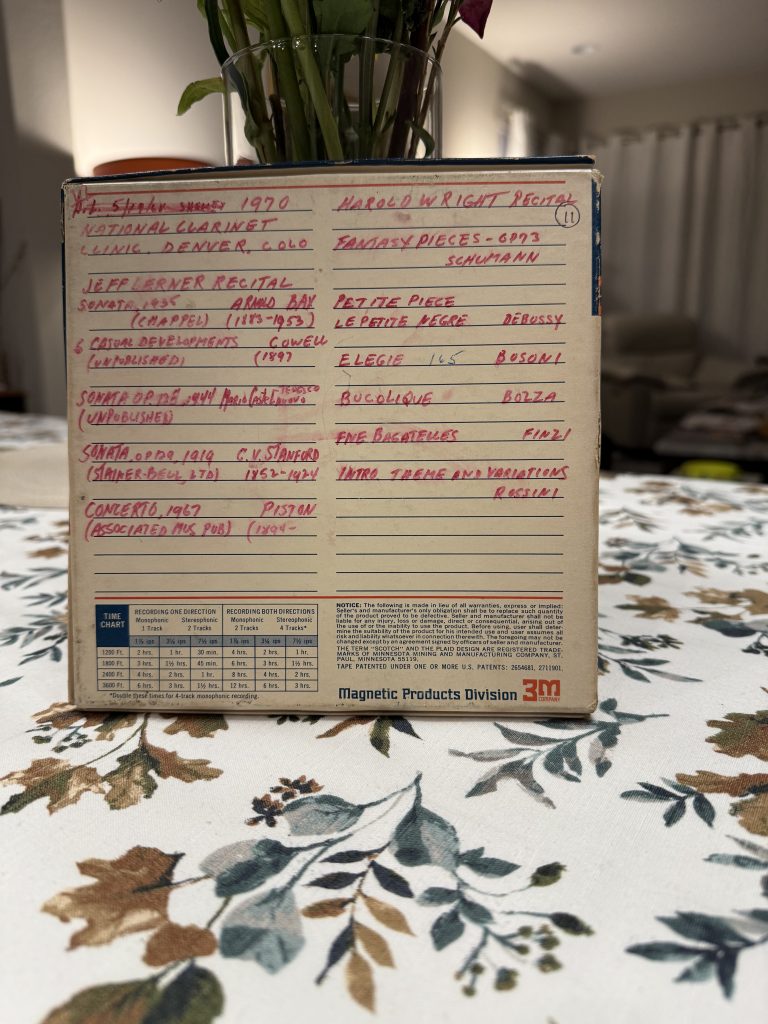 1970
NATIONAL CLARINET
CLINIC, DENVER, COLO
JEFF LERNER RECITAL
SONATA, 1935 ARNOLD BAX
(CHAPPEL) (1883-1953)
6 CASUAL DEVELOPMENTS COWELL
(UNPUBLISHED) (1897
SONATA OP 128, 1944 Mario Castelnuovo TEDESCO
(UNPUBLISHED)
SONATA, OP 129, 1919 C.V. STANFORD
(STAINER-BELL LTD) 1852-1924
CONCERTO, 1967 PISTON
(ASSOCIATED MUS PUB) (1894-
HAROLD WRIGHT RECITAL
11
FANTASY PIECES - OP73
SCHUMANN
PETITE PIECE
LE PETITE NEGRE DEBUSSY
ELEGIE 165 BUSONI
BUCOLIQUE BOZZA
FIVE BAGATELLES FINZI
INTRO, THEME AND VARIATIONS
ROSSINI
TIME CHART
RECORDING ONE DIRECTION RECORDING BOTH DIRECTIONS
Monophonic 1 Track Stereophonic 2 Tracks Monophonic 2 Tracks Stereophonic 4 Tracks*
1⅞ ips 3¾ ips 7½ ips 1⅞ ips 3¾ ips 7½ ips
1200 Ft. 2 hrs. 1 hr. 30 min. 4 hrs. 2 hrs. 1 hr.
1800 Ft. 3 hrs. 1½ hrs. 45 min. 6 hrs. 3 hrs. 1½ hrs.
2400 Ft. 4 hrs. 2 hrs. 1 hr. 8 hrs. 4 hrs. 2 hrs.
3600 Ft. 6 hrs. 3 hrs. 1½ hrs. 12 hrs. 6 hrs. 3 hrs.
*Double these times for 4-track monophonic recording.
NOTICE: The following is made in lieu of all warranties, express or implied:
Seller's and manufacturer's only obligation shall be to replace such quantity
of the product proved to be defective. Seller and manufacturer shall not be
liable for any injury, loss or damage, direct or consequential, arising out
of the use of or the inability to use the product. Before using, user shall deter-
mine the suitability of the product for his intended use and user assumes all
risk and liability whatsoever in connection therewith. The foregoing may not be
changed except by an agreement signed by officers of seller and manufacturer.
THE TERM "SCOTCH" AND THE PLAID DESIGN ARE REGISTERED TRADE-
MARKS OF MINNESOTA MINING AND MANUFACTURING COMPANY, ST.
PAUL, MINNESOTA 55119.
TAPE PATENTED UNDER ONE OR MORE U.S. PATENTS: 2654681, 2711901.
Magnetic Products Division 3M
COMPANY